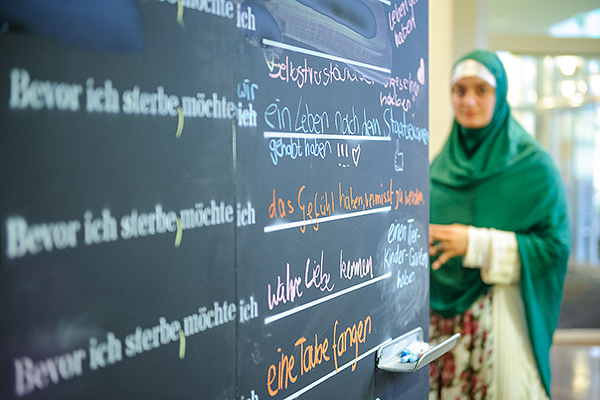 Bevor ich sterbe, möchte ich
leben haben
Selbstverständ
Bevor ich sterbe, möchte ich
wir
ein Leben nach dem Staatsexamen
gehabt haben !!! ♡
Bevor ich sterbe, möchte ich
das Gefühl haben, vermisst zu werden
einen Tier-
Kinder-Garten
haben
wahre Liebe kennen
Bevor ich sterbe, möchte ich
eine Taube fangen